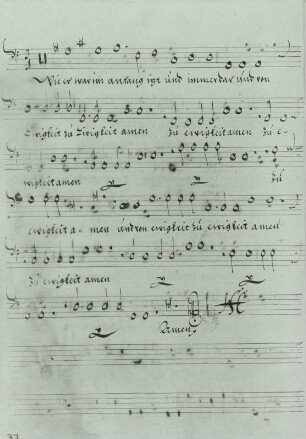 Wie er war im anfang izt und immerdar und von
Ewigkeit zu Ewigkeit amen zu ewigkeit amen zu e-
wigkeit amen zu
ewigkeit a- men und von ewigkeit zu ewigkeit amen
zu ewigkeit amen
Amen
37